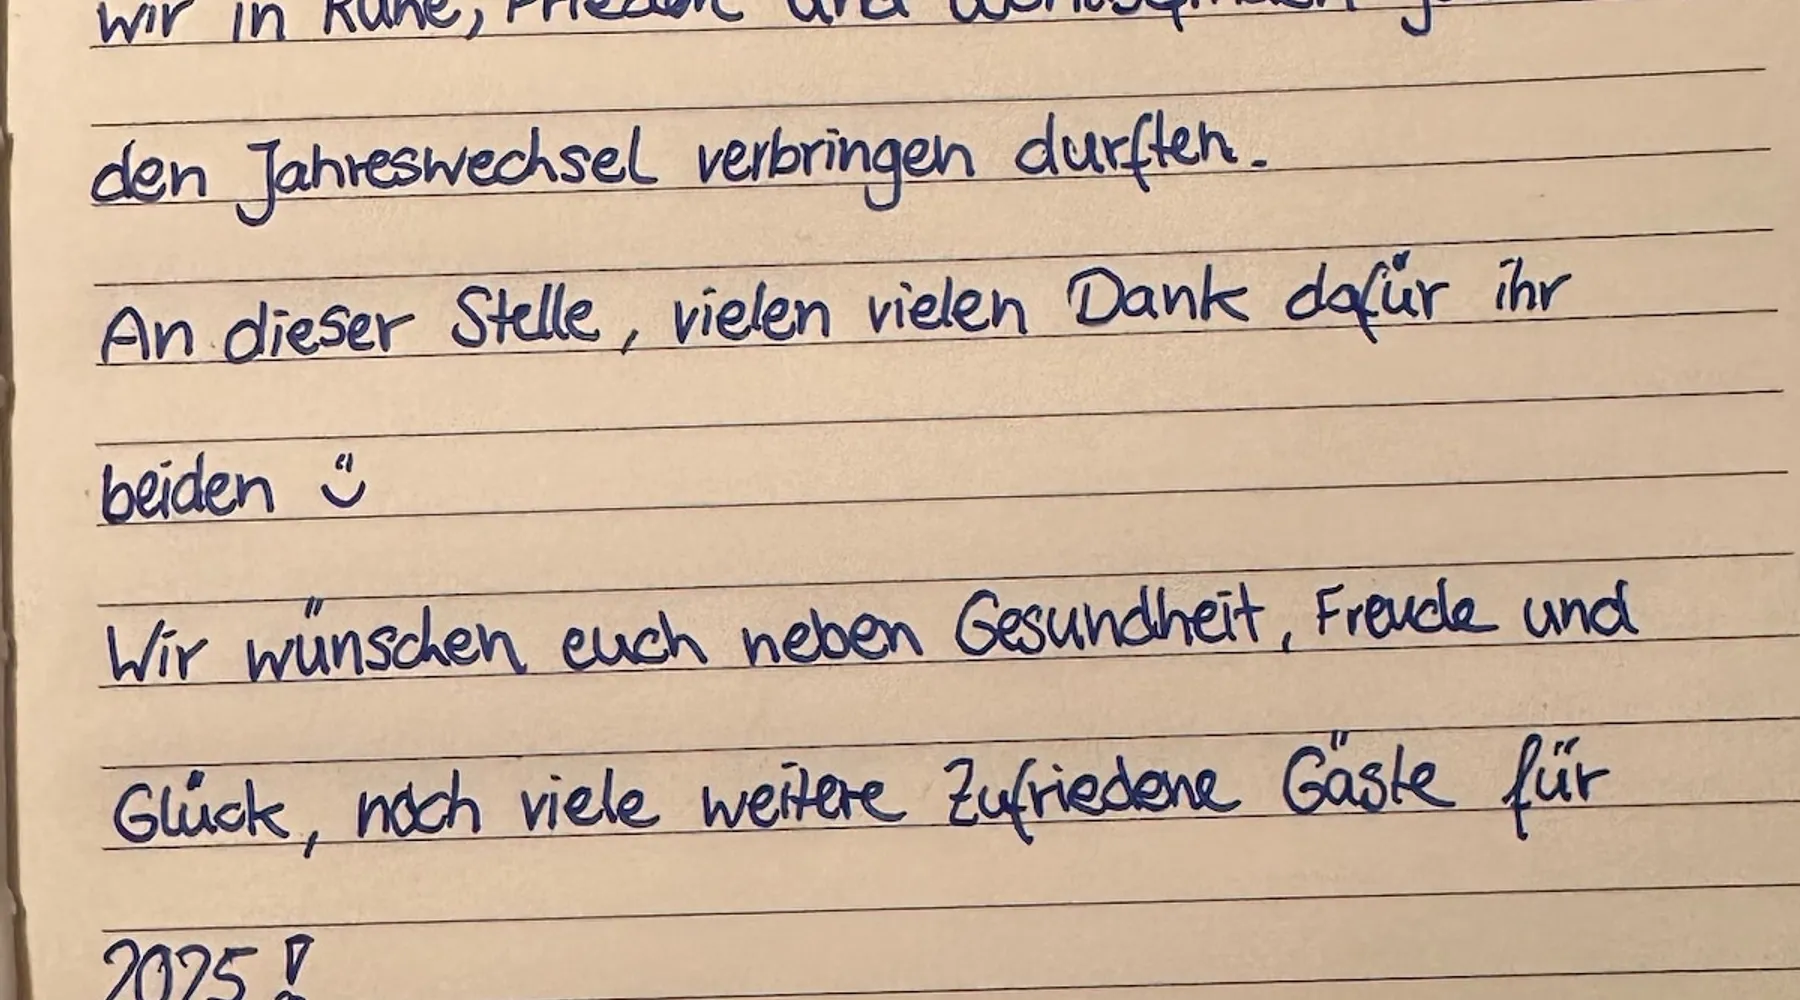 wir in Ruhe, Frieden und
den Jahreswechsel verbringen durften.
An dieser Stelle, vielen vielen Dank dafür ihr
beiden
Wir wünschen euch neben Gesundheit, Freude und
Glück, noch viele weitere Zufriedene Gäste für
2025!